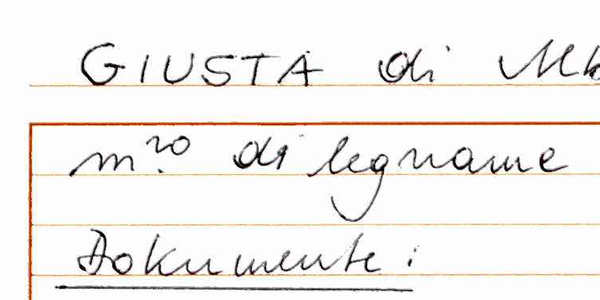 GIUSTA di
m.ro di legname
Dokumente: